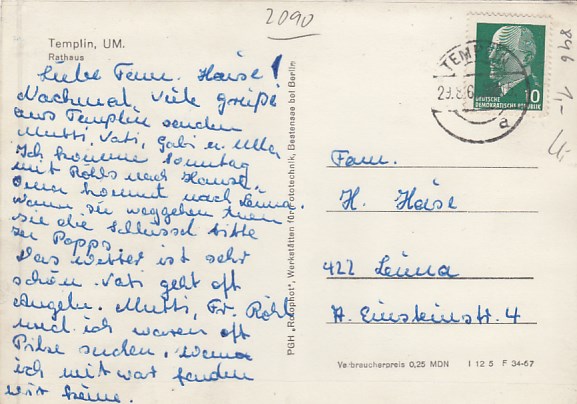 2090
Templin, UM.
Rathaus
Liebe Fam. Häise!
Nochmal viele grüße
aus Templin senden
Mutti, Vati, Gabi u. Ulla
Ich komme Sonntag
mit Röhls nach Hause.
Oma kommt nach Leuna.
wenn sie weggehen
sie die Schlüssel bitte
zu Popps
Das wetter ist sehr
schön. Vati geht oft
Angeln. Mutti, Fr. Röhl
und ich waren oft
Pilze suchen, wenn
ich mit war fanden
wir keine.
PGH „Rotophot“, Werkstätten für Fototechnik, Bestensee bei Berlin
TEMPLIN
29.8.6
a
DEUTSCHE
DEMOKRATISCHE REPUBLIK
10
846 1,-
Fam.
H. Häise
422 Leuna
A. Einsteinstr. 4
Verbraucherpreis 0,25 MDN I 12 5 F 34-67